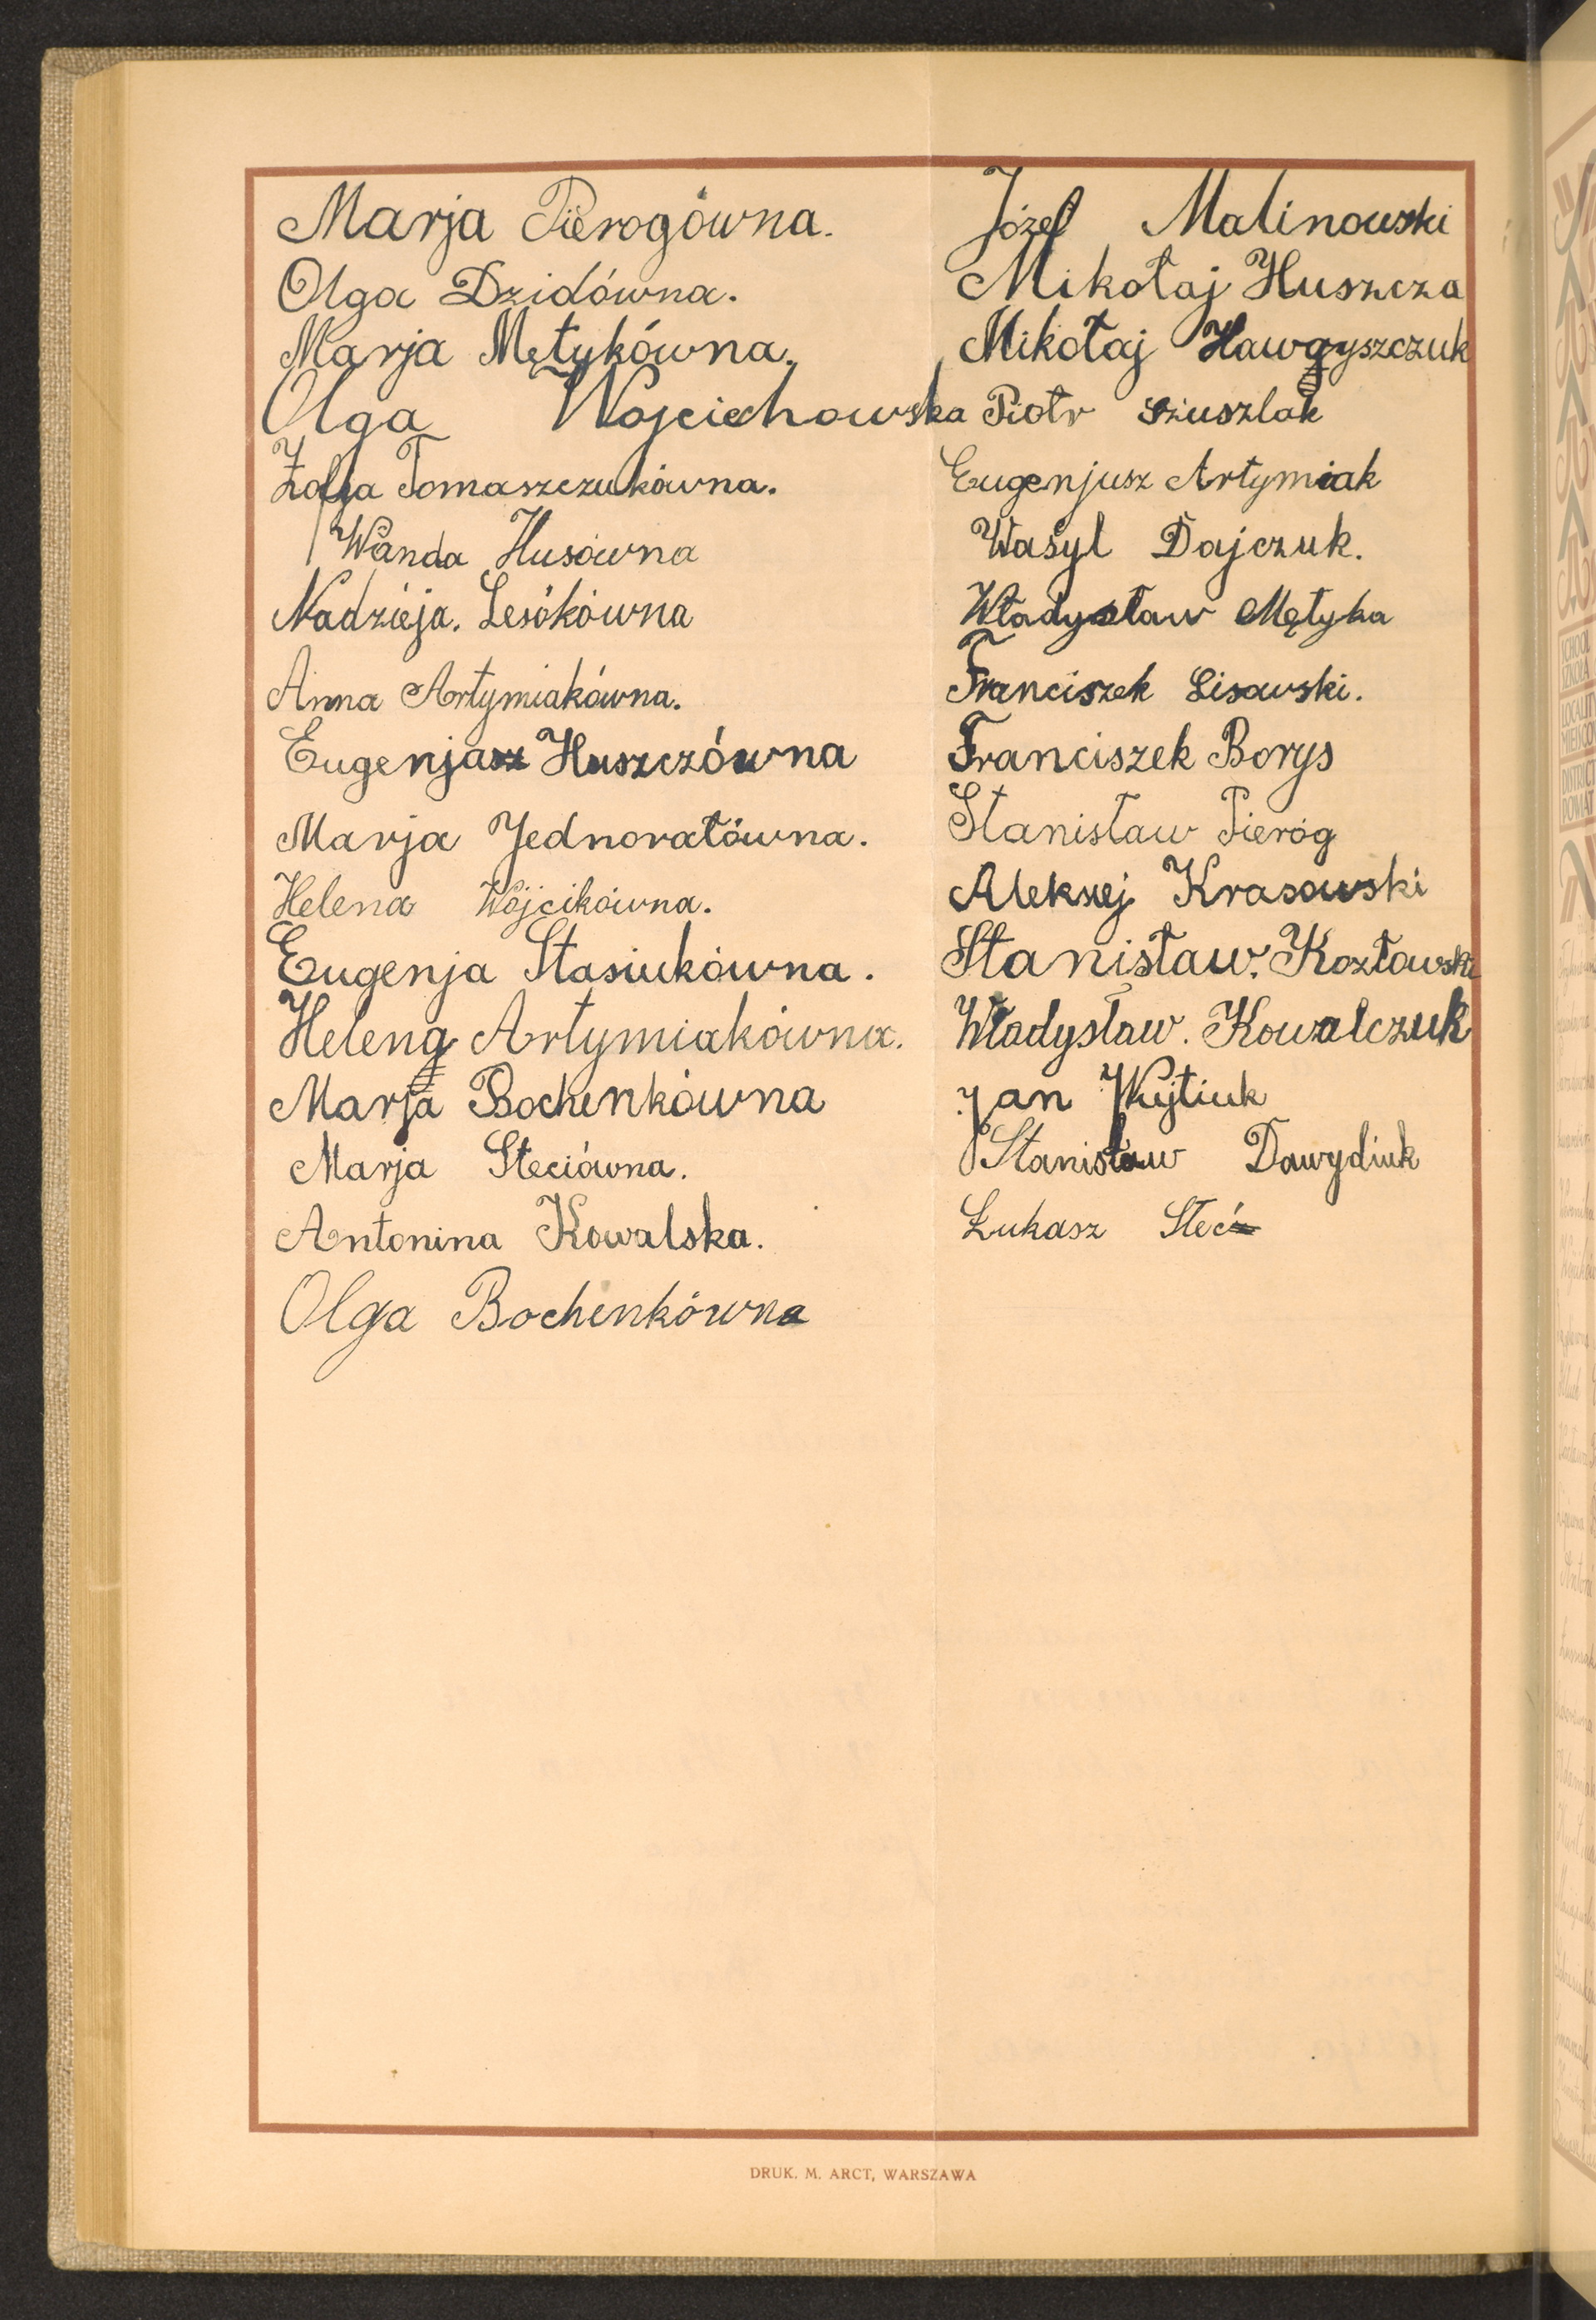 Marja Pierogówna.
Olga Dzidówna.
Marja Mętykówna.
Olga Wojciechowska
Zofja Tomaszczukówna.
Wanda Husówna
Nadzieja. Lesókówna
Anna Artymiakówna.
Eugenja Huszczówna
Marja Jednorałówna.
Helena Wójcikówna.
Eugenja Stasiukówna.
Helena Artymiakówna.
Marja Bochenkówna
Marja Steciówna.
Antonina Kowalska.
Olga Bochenkówna
Józef Malinowski
Mikołaj Huszcza
Mikołaj
Piotr
Eugenjusz Artymiak
Wasyl Dajczuk.
Władysław Mętyka
Franciszek Lisowski.
Franciszek Borys
Stanisław Pieróg
Aleksej Krasowski
Stanisław. Kozłowski
Władysław. Kowalczuk
Jan Wujtiuk
Stanisław Dawydiuk
Łukasz Steć
DRUK. M. ARCT, WARSZAWA
SCHOOL
SZKOŁA
LOCALITY
DISTRICT
POWIAT